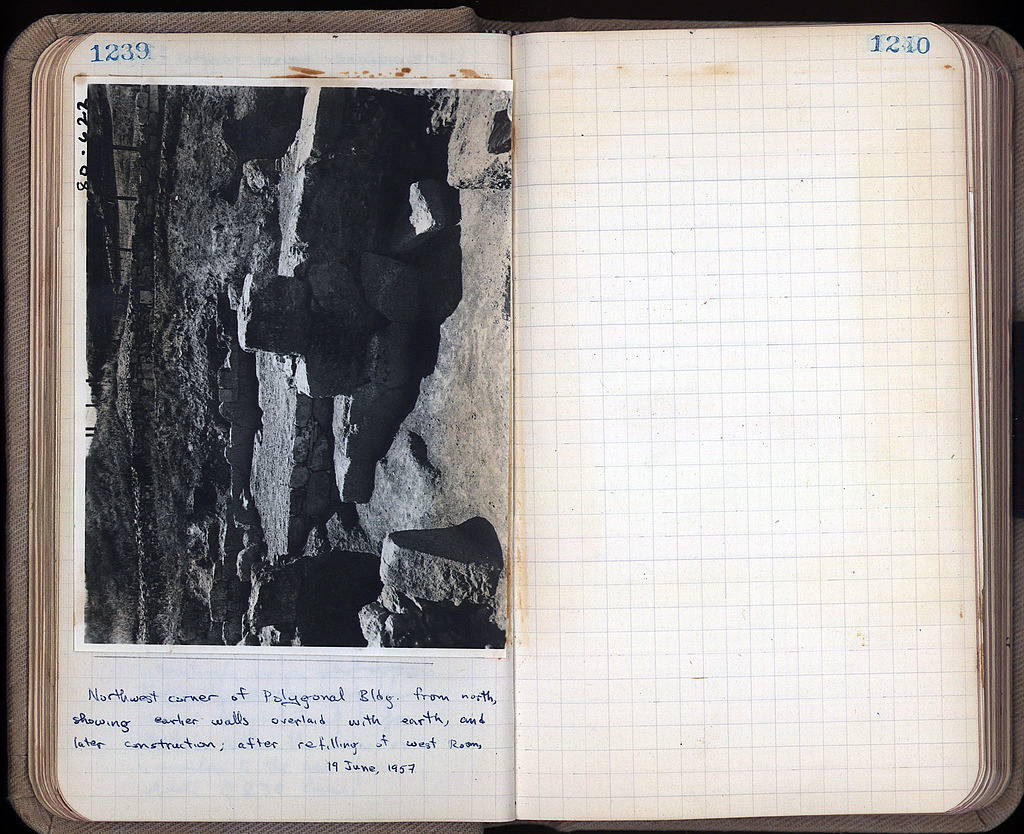 1239
1240
80-622
Northwest corner of Polygonal Bldg. from north,
showing earlier walls overlaid with earth, and
later construction; after refilling of west Room
19 June, 1957